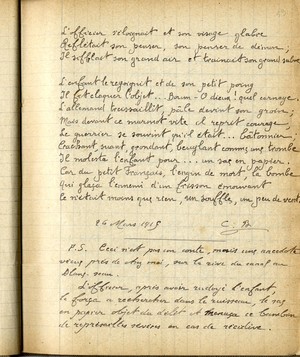 L'officier s'éloignait et son visage glabre
Reflétait son penser, son penser de démon;
Il sifflait son grand air et traînait son grand sabre.
L'enfant le rejoignit et de son petit poing
Il fit claquer l'objet... Baum! O dieu! quel carnage
L'allemand tressaillit, pâle devint son groin;
Mais devant ce marmot vite il reprit courage,
Le guerrier se souvint qu'il était... bâtonnier
Crachant, suant, grondant, beuglant comme une trombe
Il molesta l'enfant pour... un sac en papier.
Car du petit français, l'engin de mort, la bombe
Qui glaça l'ennemi d'un frisson émouvant
Ce n'était moins que rien, un souffle, un peu de vent.
26 Mars 1915
P.S. Ceci n'est pas un conte, mais une anecdote
vécue près de chez moi, sur la rive du canal au
L'officier, après avoir rudoyé l'enfant,
le força à rechercher dans le ruisseau, le sac
en papier objet du délit & menaça ce bambin
de représailles sévères en cas de récidive.